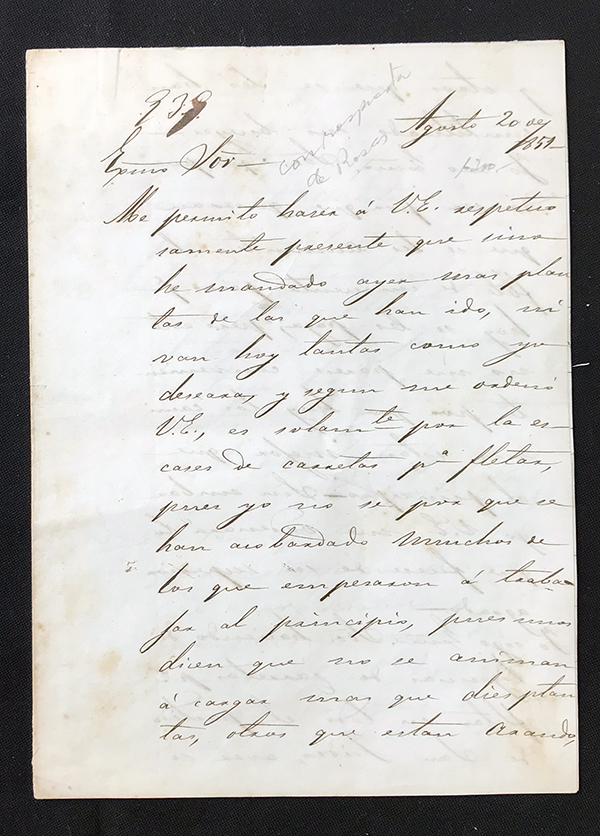 939
con respuesta
de Rosas
Agosto 20 de
1851
Exmo Sor
Me permito haser á V.E. respetuo
samente presente que sino
he mandado ayer mas plan
tas de las que han ido, ni
van hoy tantas como yo
deseara, y segun me ordenó
V.E., es solamte por la es-
cases de carretas pa fletar,
pues yo no se por que se
han acobardado muchos de
los que empesaron á traba-
jar al principio, pues unos
dicen que no se animan
á cargar mas que dies plan
tas, otros que estan arando,